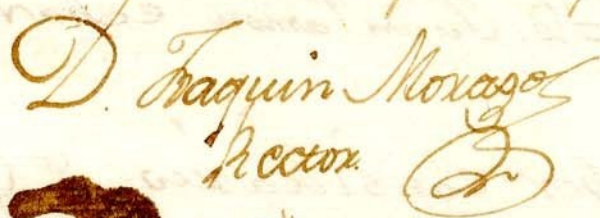 D. Joaquin Moxago
Rector.